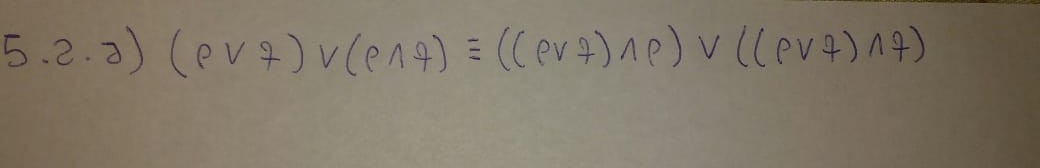 5.2.a) (p ∨ q) ∨ (p ∧ q) ≡ ((p ∨ q) ∧ p) ∨ ((p ∨ q) ∧ q)